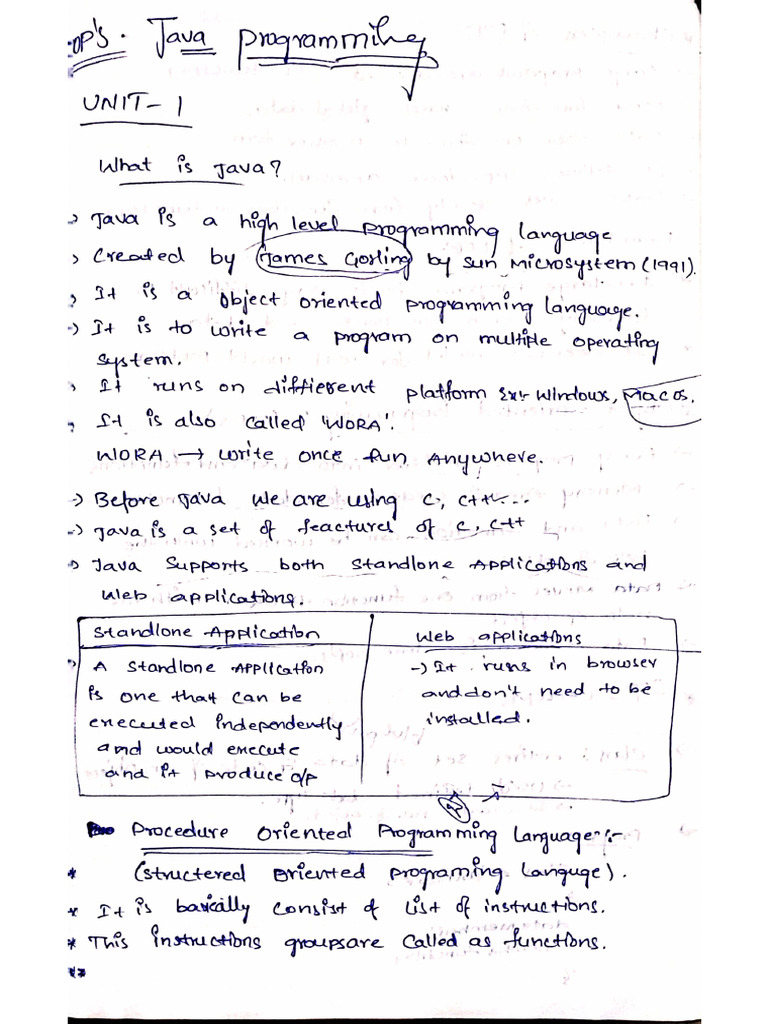 OP's. Java Programming
UNIT-1
What is Java?
→ Java is a high level programming language
→ Created by James Gosling by Sun Microsystem (1991).
→ It is a object oriented programming language.
→ It is to write a program on multiple operating
system.
→ It runs on diffierent platform Ex:- Windows, Mac os.
→ It is also called 'WORA'.
WORA → write once run Anywhere.
→ Before Java we are using C, C++...
→ Java is a set of feactures of C, C++
→ Java Supports both Standlone Applications and
Web applications.
Standlone Application
→ A Standlone Application
is one that can be
executed independently
and would execute
and it produce o/p
Web applications
→ It runs in browser
and don't need to be
installed.
Procedure Oriented Programming Language :-
(structered oriented programing Languge).
* It is basically consist of List of instructions.
* This instructions groups are called as functions.
*